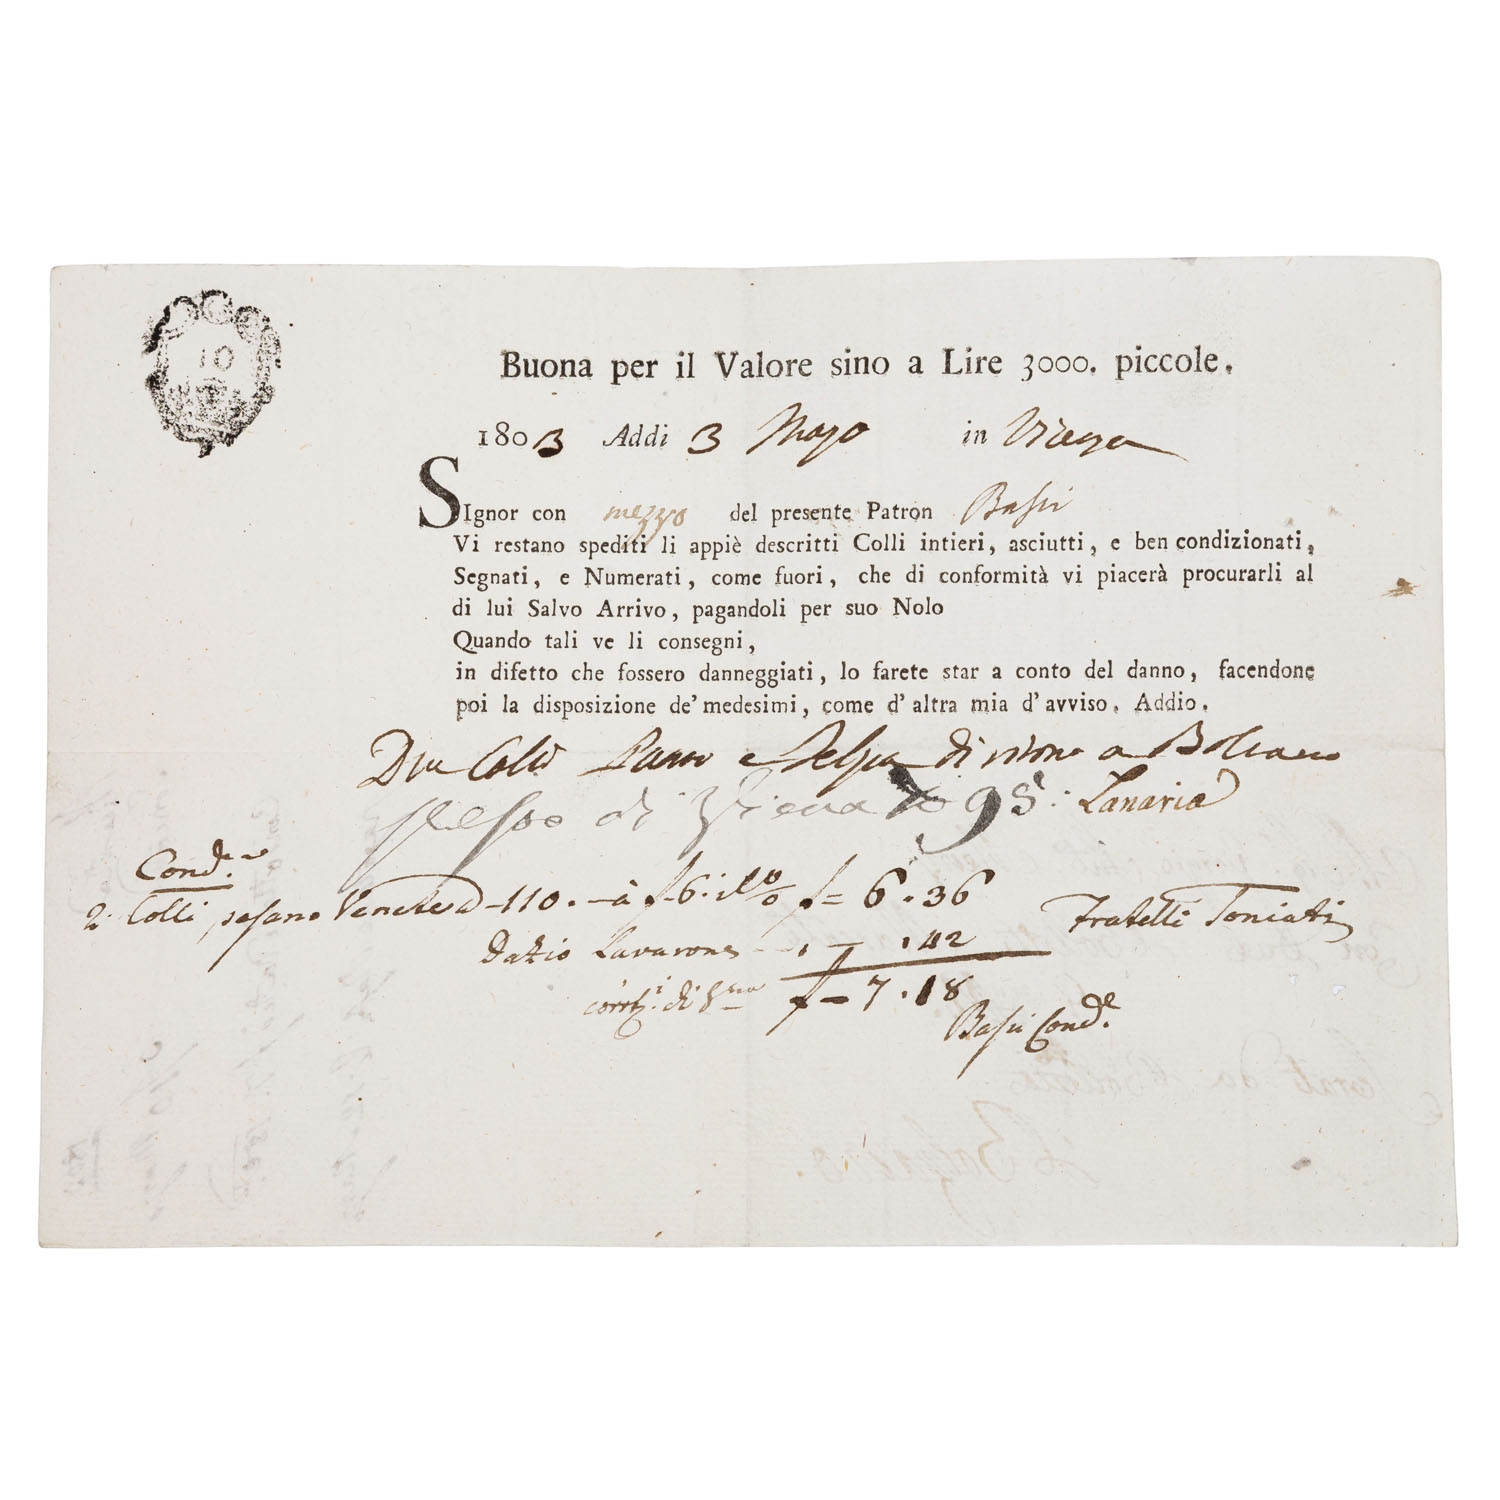 10
Buona per il Valore sino a Lire 3000. piccole.
1803 Addi 3 Majo in
SIgnor con mezzo del presente Patron Bassi
Vi restano spediti li appiè descritti Colli intieri, asciutti, e ben condizionati,
Segnati, e Numerati, come fuori, che di conformità vi piacerà procurarli al
di lui Salvo Arrivo, pagandoli per suo Nolo
Quando tali ve li consegni,
in difetto che fossero danneggiati, lo farete star a conto del danno, facendone
poi la disposizione de' medesimi, come d' altra mia d' avviso. Addio.
Due Colli Panno e Felpa di a Bolzano
di 98: Lanaria
Cond.e
2. Colli pesano Venete 110. à f 6: f= 6.36
Dazio Lavarone - .42
di f= 7.18
Fratelli Toniatti
Bassi Cond.e